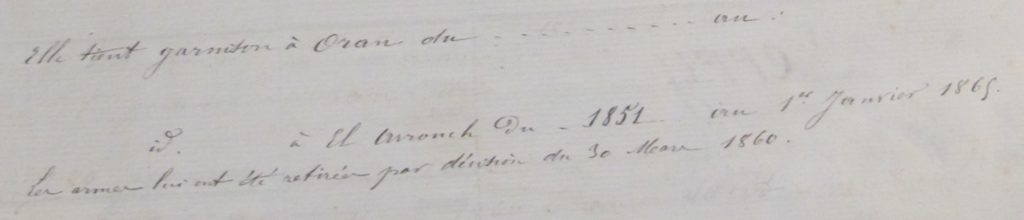 Elle tient garnison à Oran du - - - - - - - - - au :
id. à El Arrouch Du - 1851 au 1er Janvier 1865.
Les armes lui ont été retirées par décision du 30 Mars 1860.